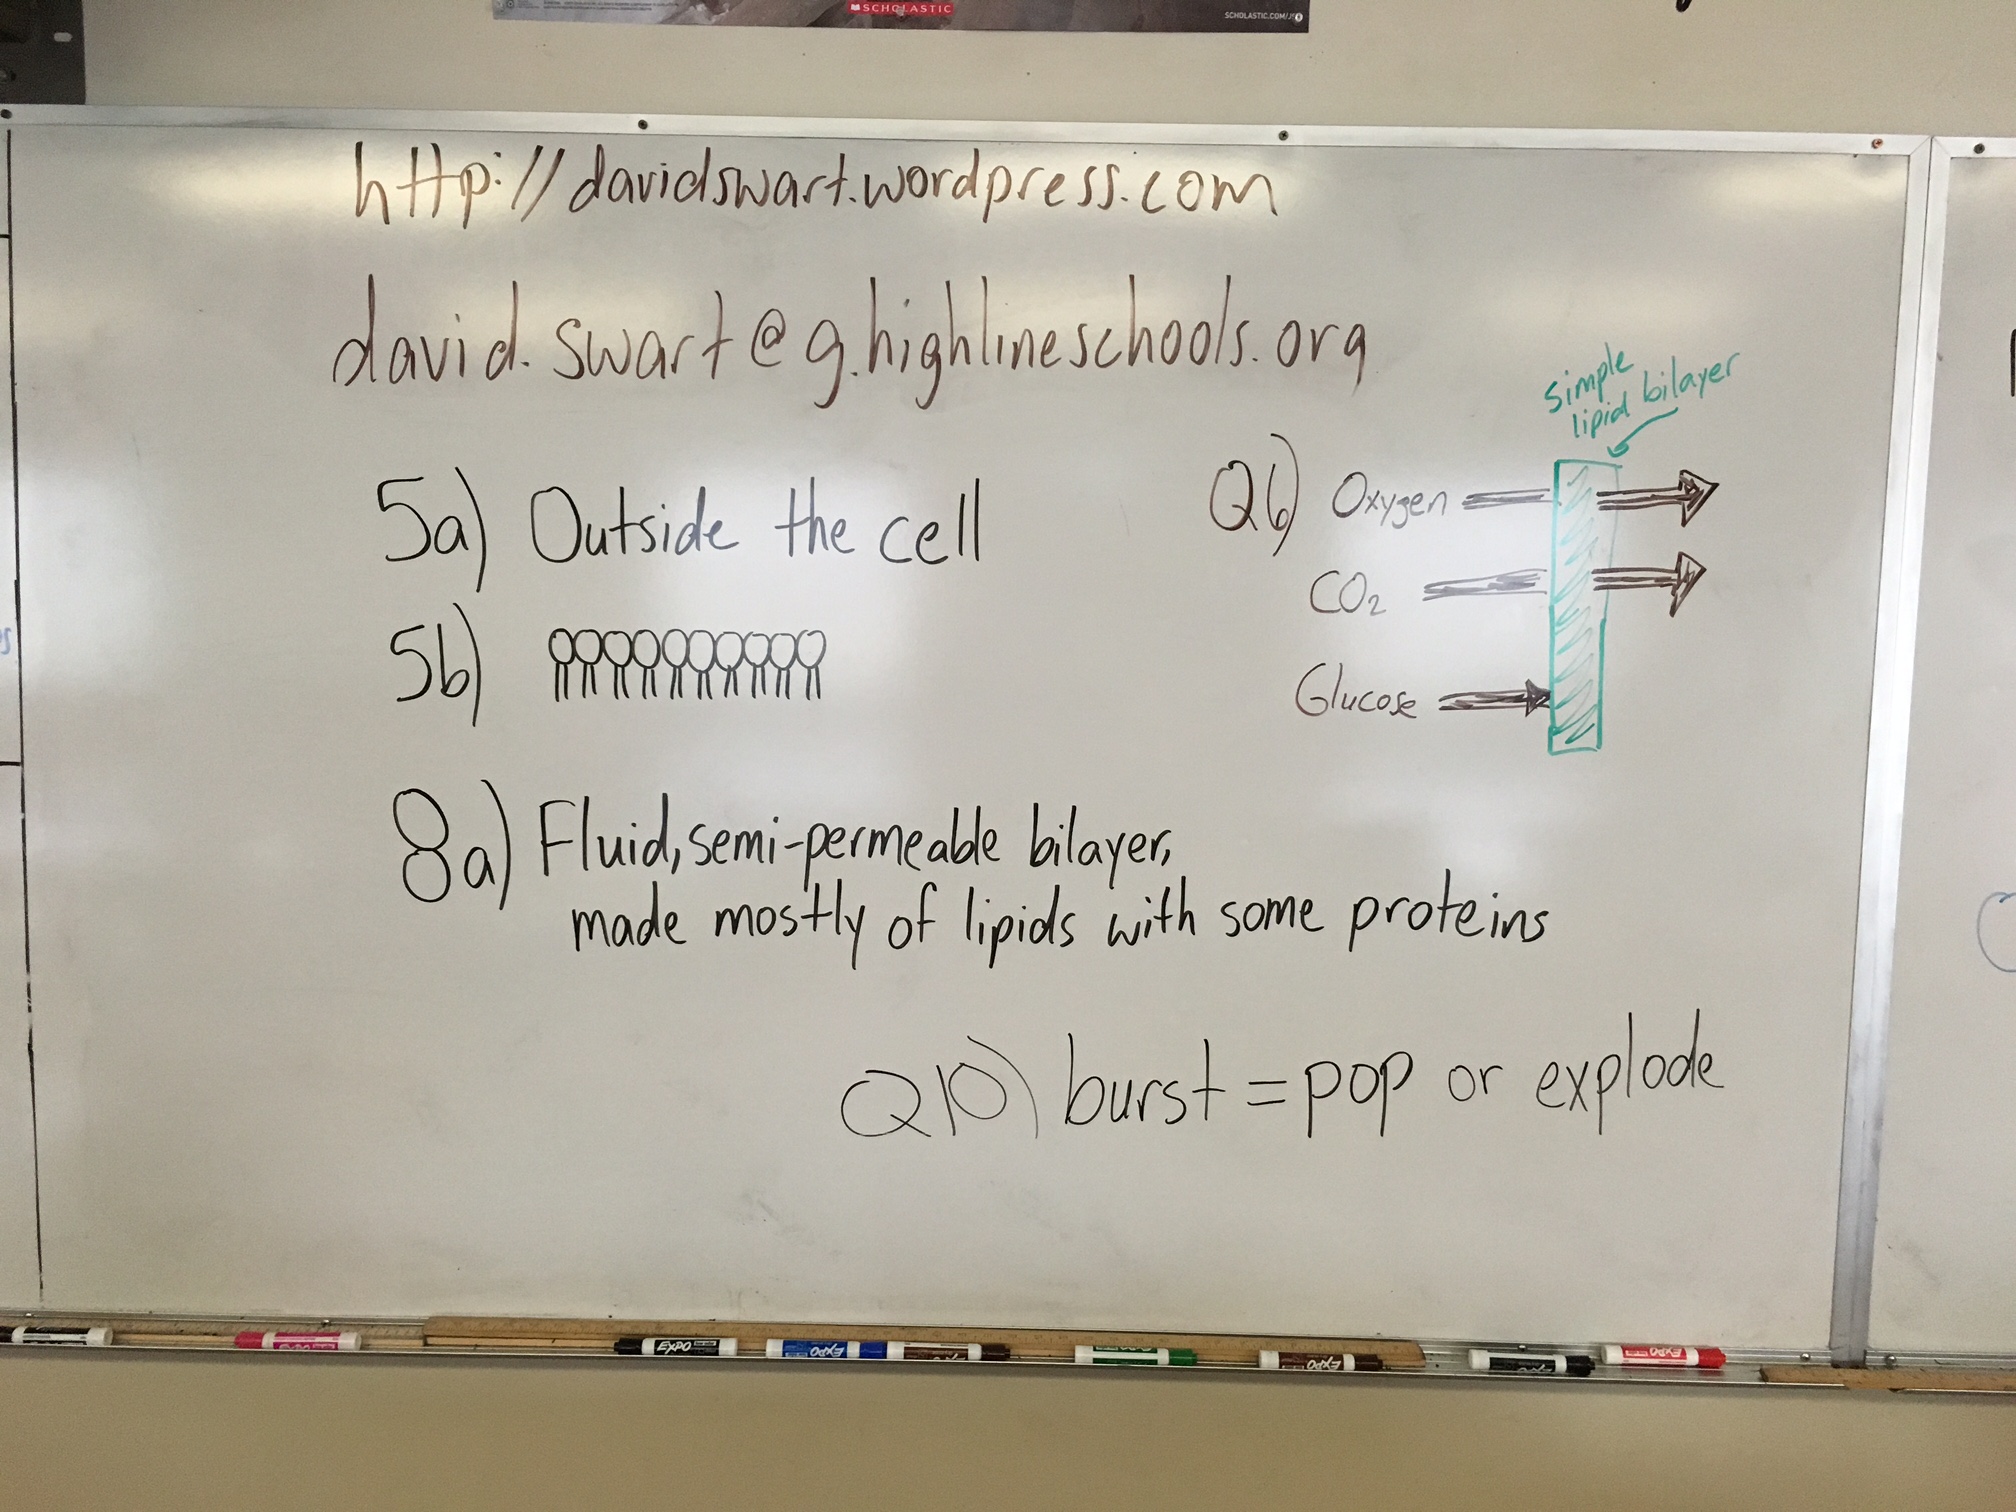 SCHOLASTIC
http://davidswart.wordpress.com
david.swart@g.highlineschools.org
simple
lipid bilayer
5a) Outside the cell
Q6) Oxygen
CO₂
5b)
Glucose
8a) Fluid, semi-permeable bilayer,
made mostly of lipids with some proteins
Q10) burst = pop or explode
EXPO
EXPO
EXPO
EXPO
EXPO
EXPO